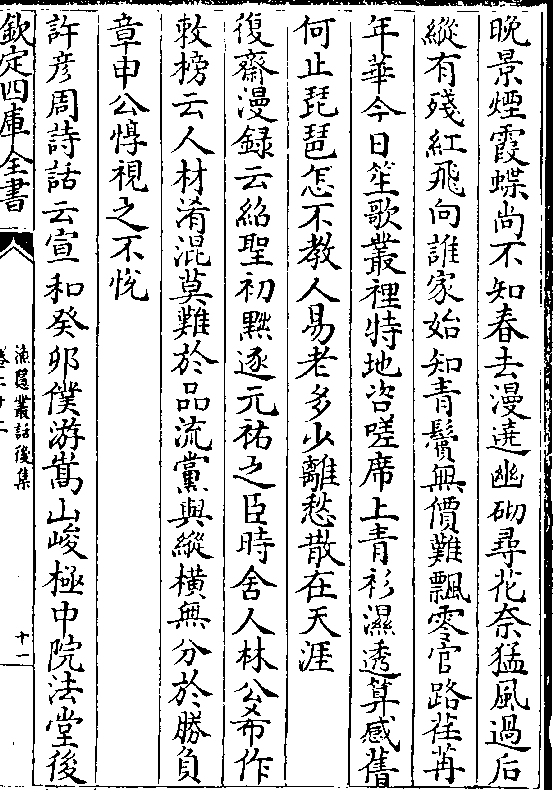 晚景煙霞蝶尚不知春去漫遶幽砌尋花奈猛風過后
縱有殘紅飛向誰家始知青鬢無價難飄零官路荏苒
年華今日笙歌叢裡特地咨嗟席上青衫濕透算感舊
何止琵琶怎不教人易老多少離愁散在天涯
復齋漫録云紹聖初黜逐元祐之臣時舍人林公希作
敕榜云人材淆混莫難於品流黨與縱橫無分於勝負
章申公惇視之不悅
許彦周詩話云宣和癸卯僕游嵩山峻極中院法堂後
欽定四庫全書
漁隱叢話後集
卷三十二
十一